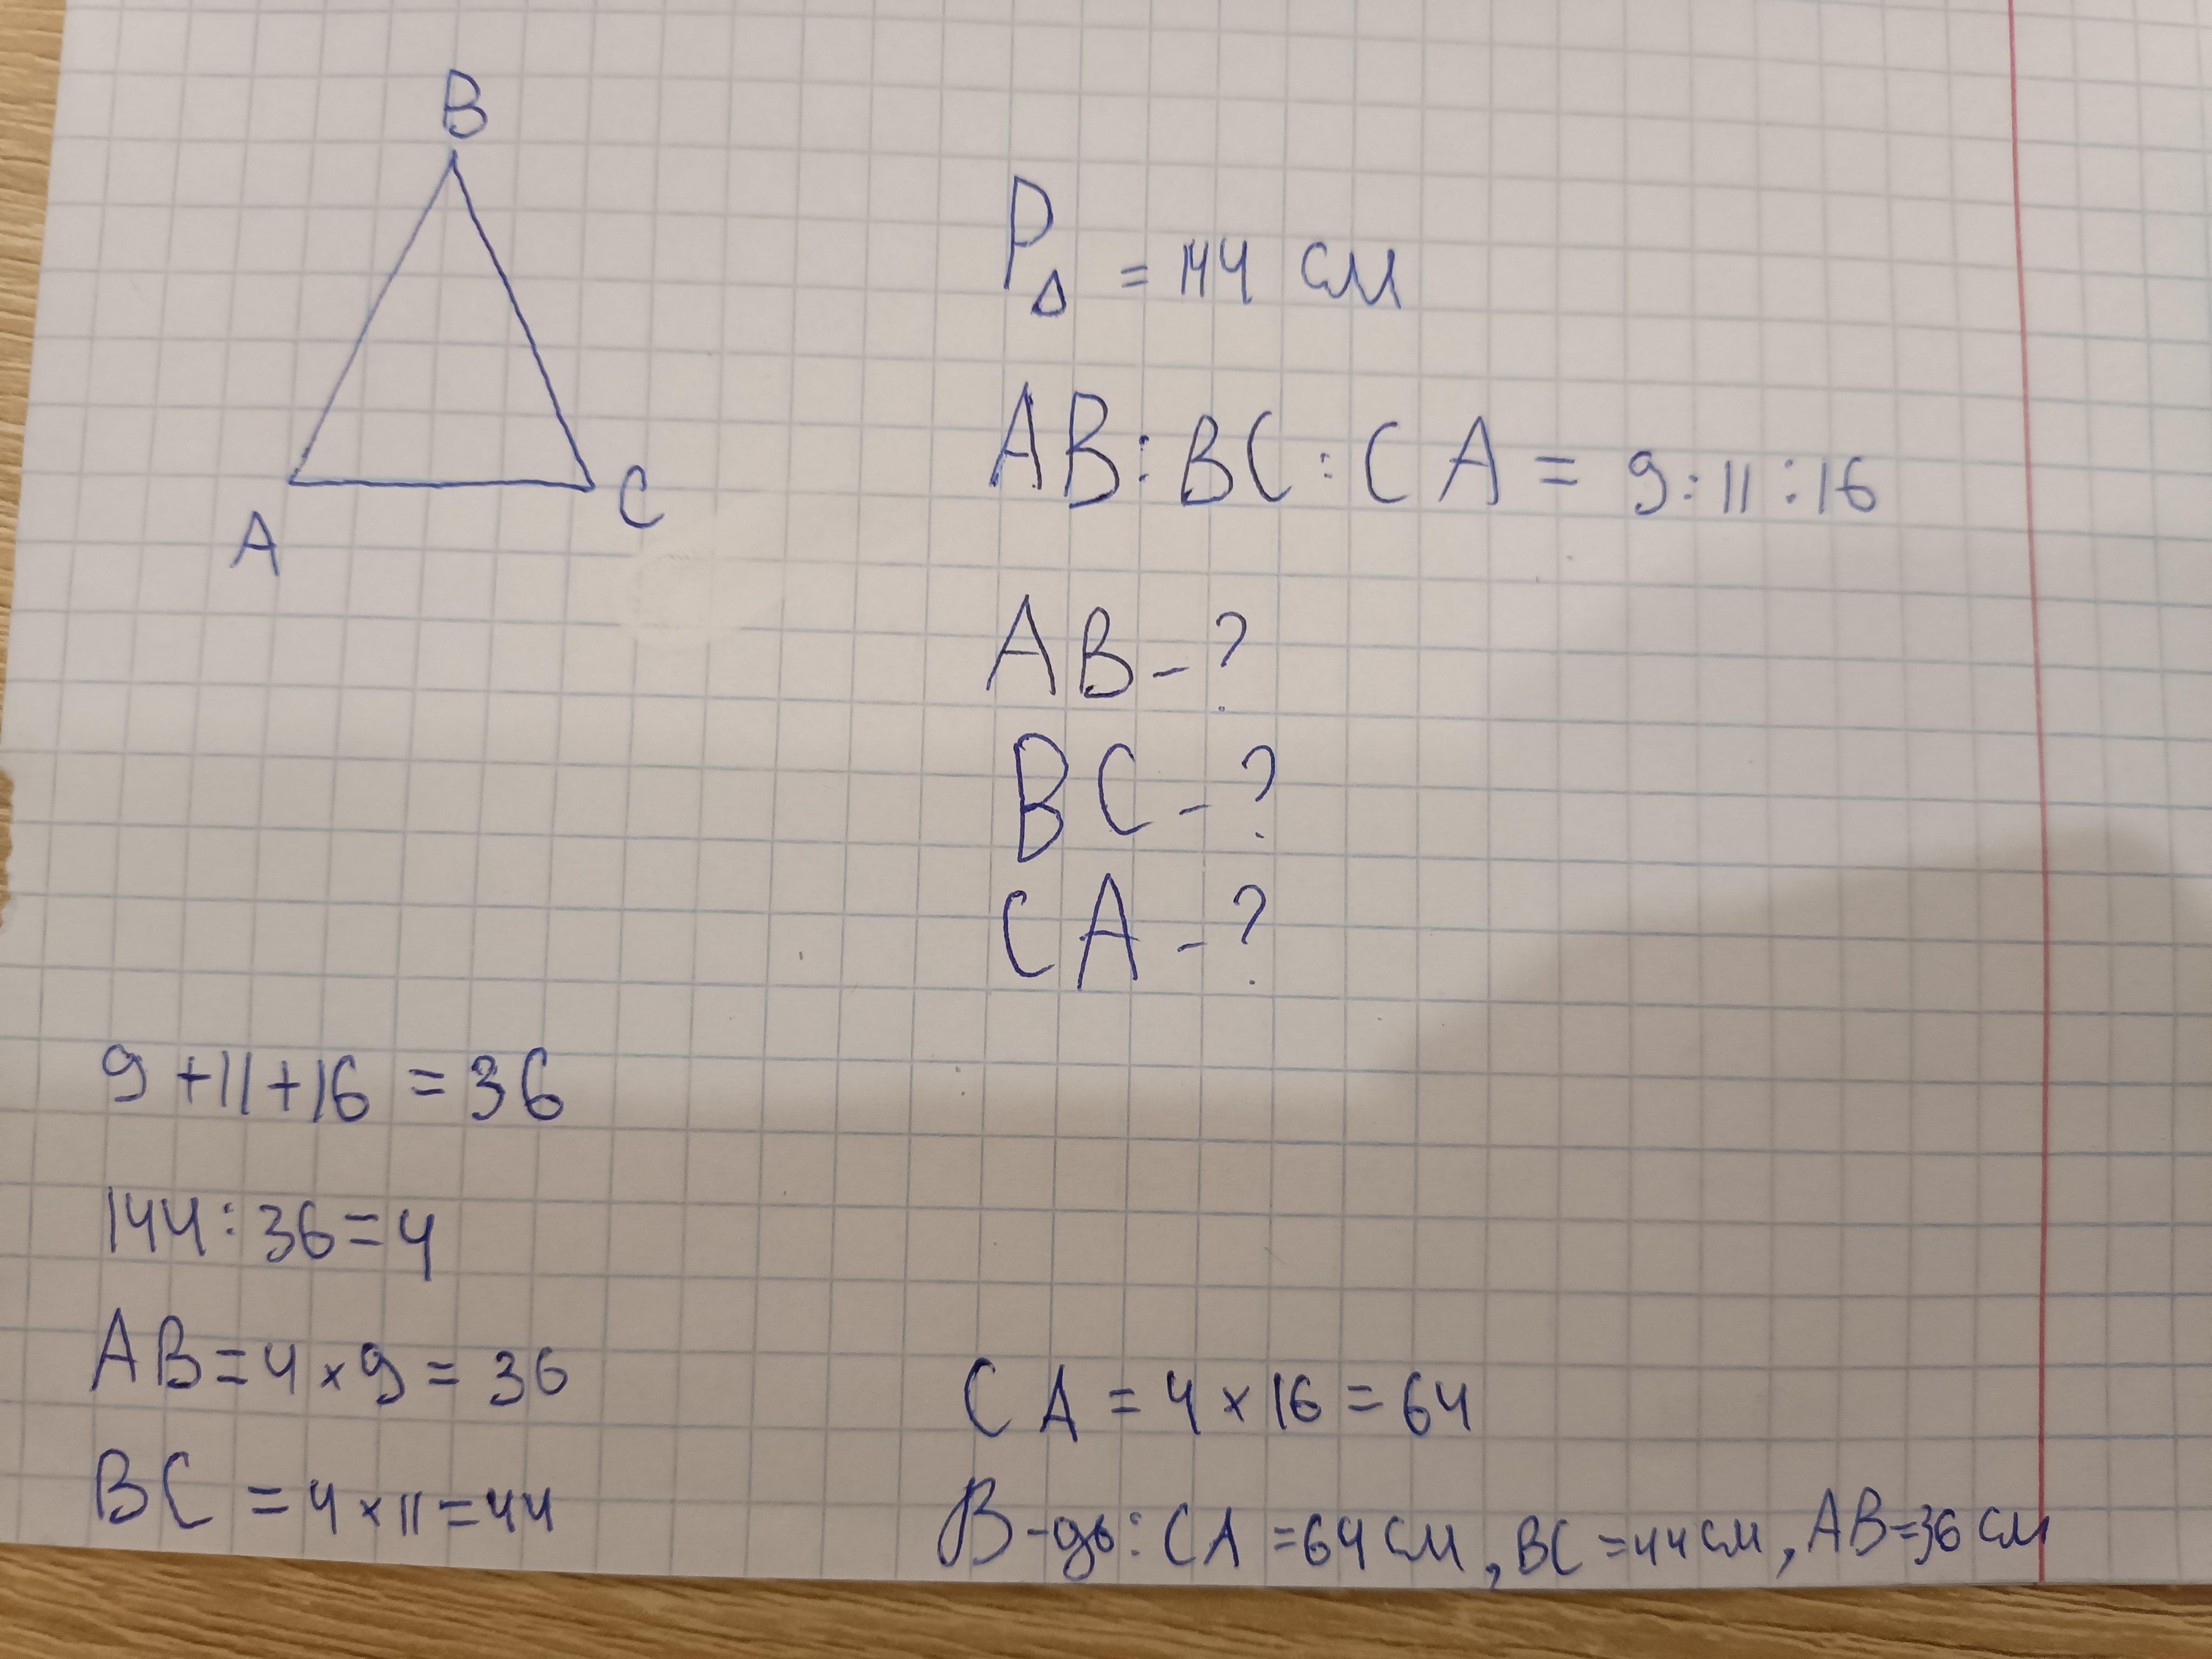 B
A
C
P△ = 144 см
AB : BC : CA = 9 : 11 : 16
AB - ?
BC - ?
CA - ?
9 + 11 + 16 = 36
144 : 36 = 4
AB = 4 × 9 = 36
BC = 4 × 11 = 44
CA = 4 × 16 = 64
В-дь: CA = 64 см, BC = 44 см, AB = 36 см